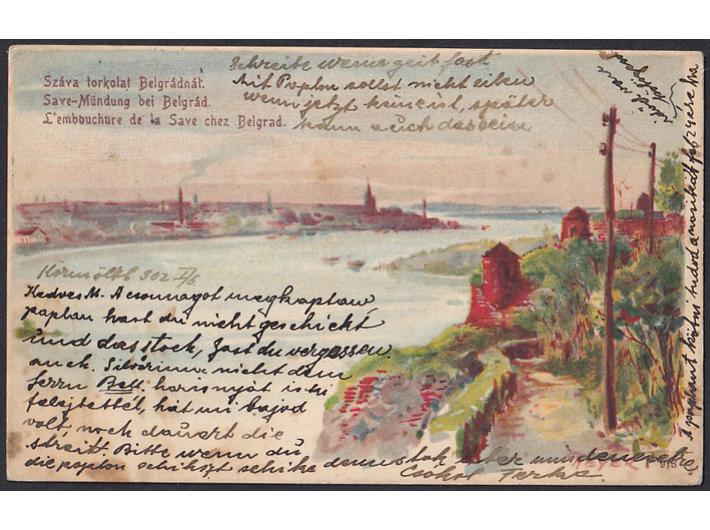 Száva torkolat Belgrádnát.
Save-Mündung bei Belgrád.
L'embouchure de la Save chez Belgrad.
Schreibe wenn zeit hast
Mit Paplan sollst nicht eilen
wenn jetzt keine ist, später
kann auch das sein
902 I/6
Kedves M. A csomagot megkaptam
paplan hast du nicht geschickt
und das stock, hast du vergessen
auch. Silvörinne nicht dem
ferru Bett. harisnyát is ki
felejtettél, hát mi bajod
volt noch dauert die
streit. Bitte wenn du
die paplan schikszt schike den stok, aber mindenesetre
Csókol Terka.
A paplant kötve tudod a
MEYER
918